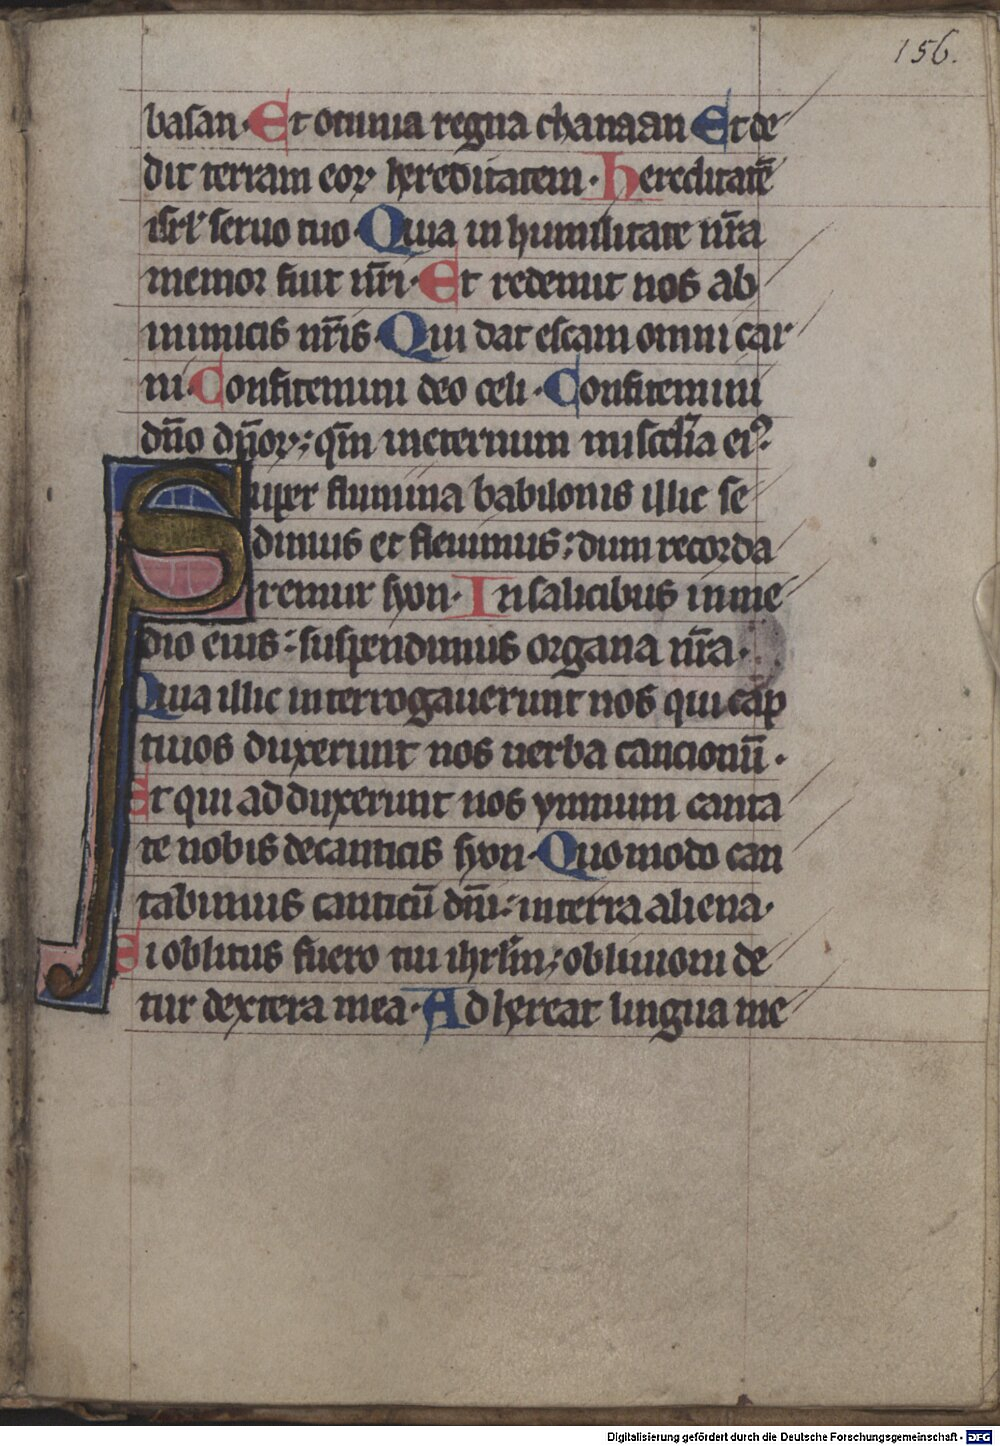 156.
basan. Et omnia regna chanaan Et de
dit terram eoꝝ hereditatem. Hereditatē
isrl̄ seruo tuo Quia in humilitate nr̄a
memor fuit nr̄i. Et redemit nos ab
inimicis nr̄is Qui dat escam omni car
ni. Confitemini deo celi. Confitemini
dn̄o dn̄oꝝ; qm̄ in eternum mi sc̄dia eiꝰ.
Super flumina babilonis illic se
dimus et fleuimus; dum recorda
remur syon. In salicibus in me
dio eius: suspendimus organa nr̄a.
Quia illic interrogauerunt nos qui cap
tiuos duxerunt nos uerba cancionū.
Et qui adduxerunt nos ymnum canta
te nobis de canticis syon. Quomodo can
tabimus canticū dn̄i: in terra aliena.
Si oblitus fuero tui ihrl̄m; obliuioni de
tur dextera mea. Adhereat lingua me
Digitalisierung gefördert durch die Deutsche Forschungsgemeinschaft - DFG